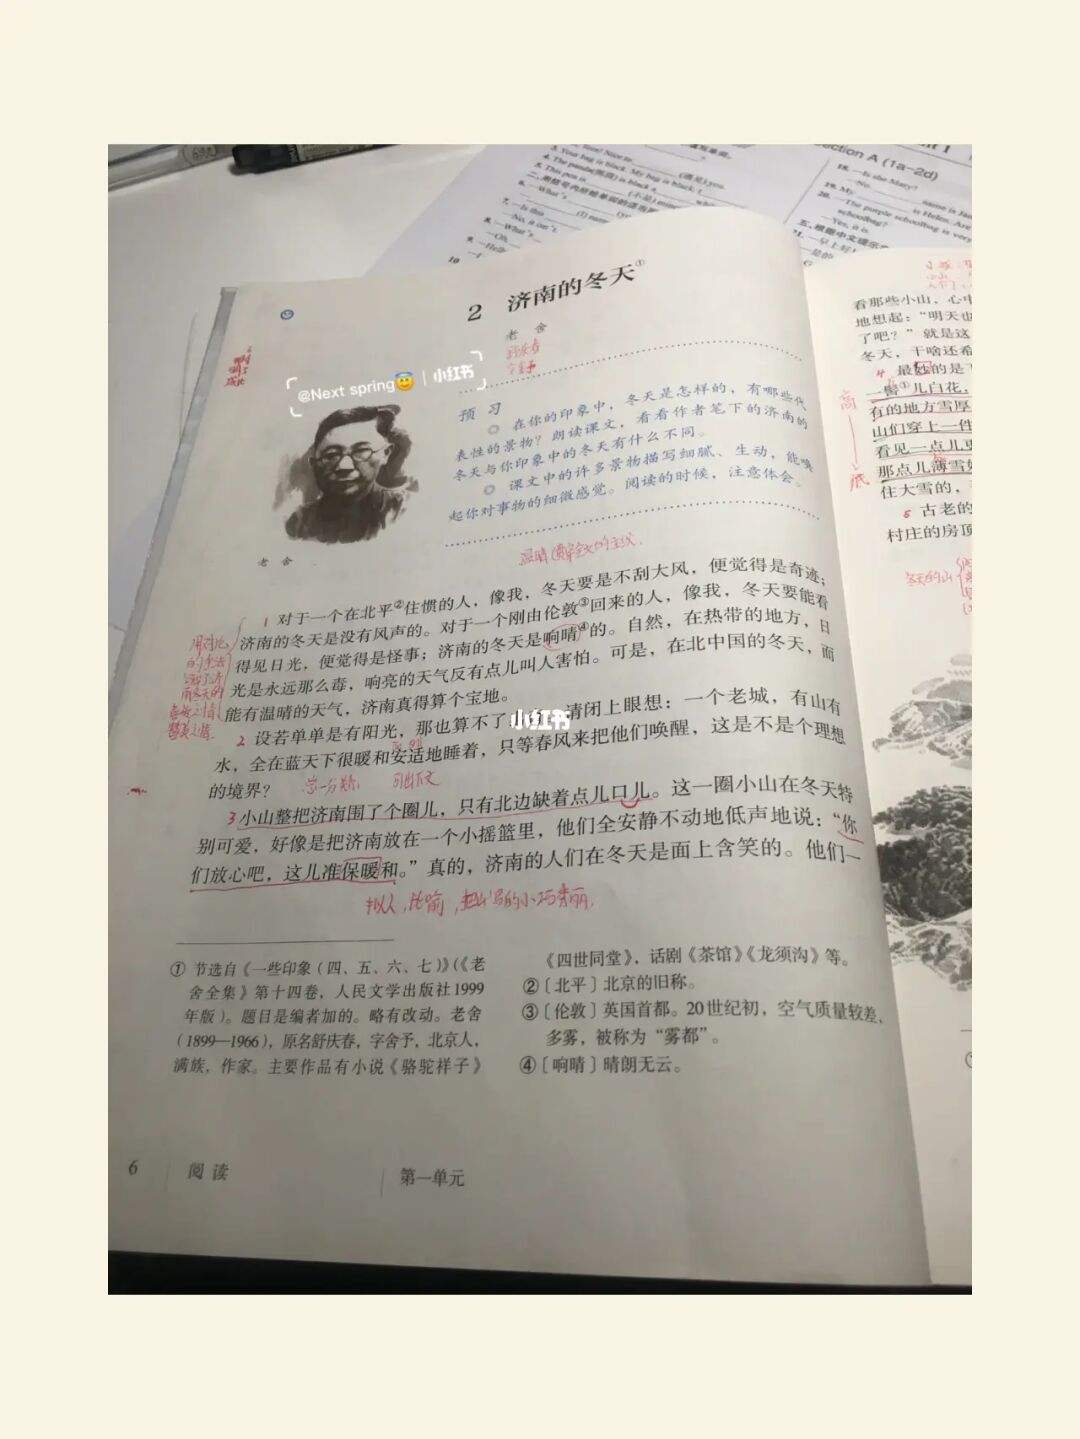 Section A (1a-2d)
2 济南的冬天①
老 舍
@Next spring😇 | 小红书
预 习
◎ 在你的印象中，冬天是怎样的，有哪些代
表性的景物？朗读课文，看看作者笔下的济南的
冬天与你印象中的冬天有什么不同。
◎ 课文中的许多景物描写细腻、生动，能唤
起你对事物的细微感觉。阅读的时候，注意体会。
老 舍
1 对于一个在北平②住惯的人，像我，冬天要是不刮大风，便觉得是奇迹；
济南的冬天是没有风声的。对于一个刚由伦敦③回来的人，像我，冬天要能看
得见日光，便觉得是怪事；济南的冬天是响晴④的。自然，在热带的地方，日
光是永远那么毒，响亮的天气反有点儿叫人害怕。可是，在北中国的冬天，而
能有温晴的天气，济南真得算个宝地。
2 设若单单是有阳光，那也算不了 小红书 请闭上眼想：一个老城，有山有
水，全在蓝天下很暖和安适地睡着，只等春风来把他们唤醒，这是不是个理想
的境界？
3 小山整把济南围了个圈儿，只有北边缺着点儿口儿。这一圈小山在冬天特
别可爱，好像是把济南放在一个小摇篮里，他们全安静不动地低声地说：“你
们放心吧，这儿准保暖和。”真的，济南的人们在冬天是面上含笑的。他们一
拟人，比喻，
① 节选自《一些印象（四、五、六、七）》（《老
舍全集》第十四卷，人民文学出版社1999
年版）。题目是编者加的。略有改动。老舍
（1899—1966），原名舒庆春，字舍予，北京人，
满族，作家。主要作品有小说《骆驼祥子》
《四世同堂》，话剧《茶馆》《龙须沟》等。
②〔北平〕北京的旧称。
③〔伦敦〕英国首都。20世纪初，空气质量较差，
多雾，被称为“雾都”。
④〔响晴〕晴朗无云。
6 阅读 第一单元
看那些小山，心中
地想起：“明天也
了吧？”就是这
冬天，干啥还希
4 最妙的是下
髻①儿白花，
有的地方雪厚
山们穿上一件
看见一点儿更
那点儿薄雪好
住大雪的，
5 古老的
村庄的房顶
高
低
冬天的山